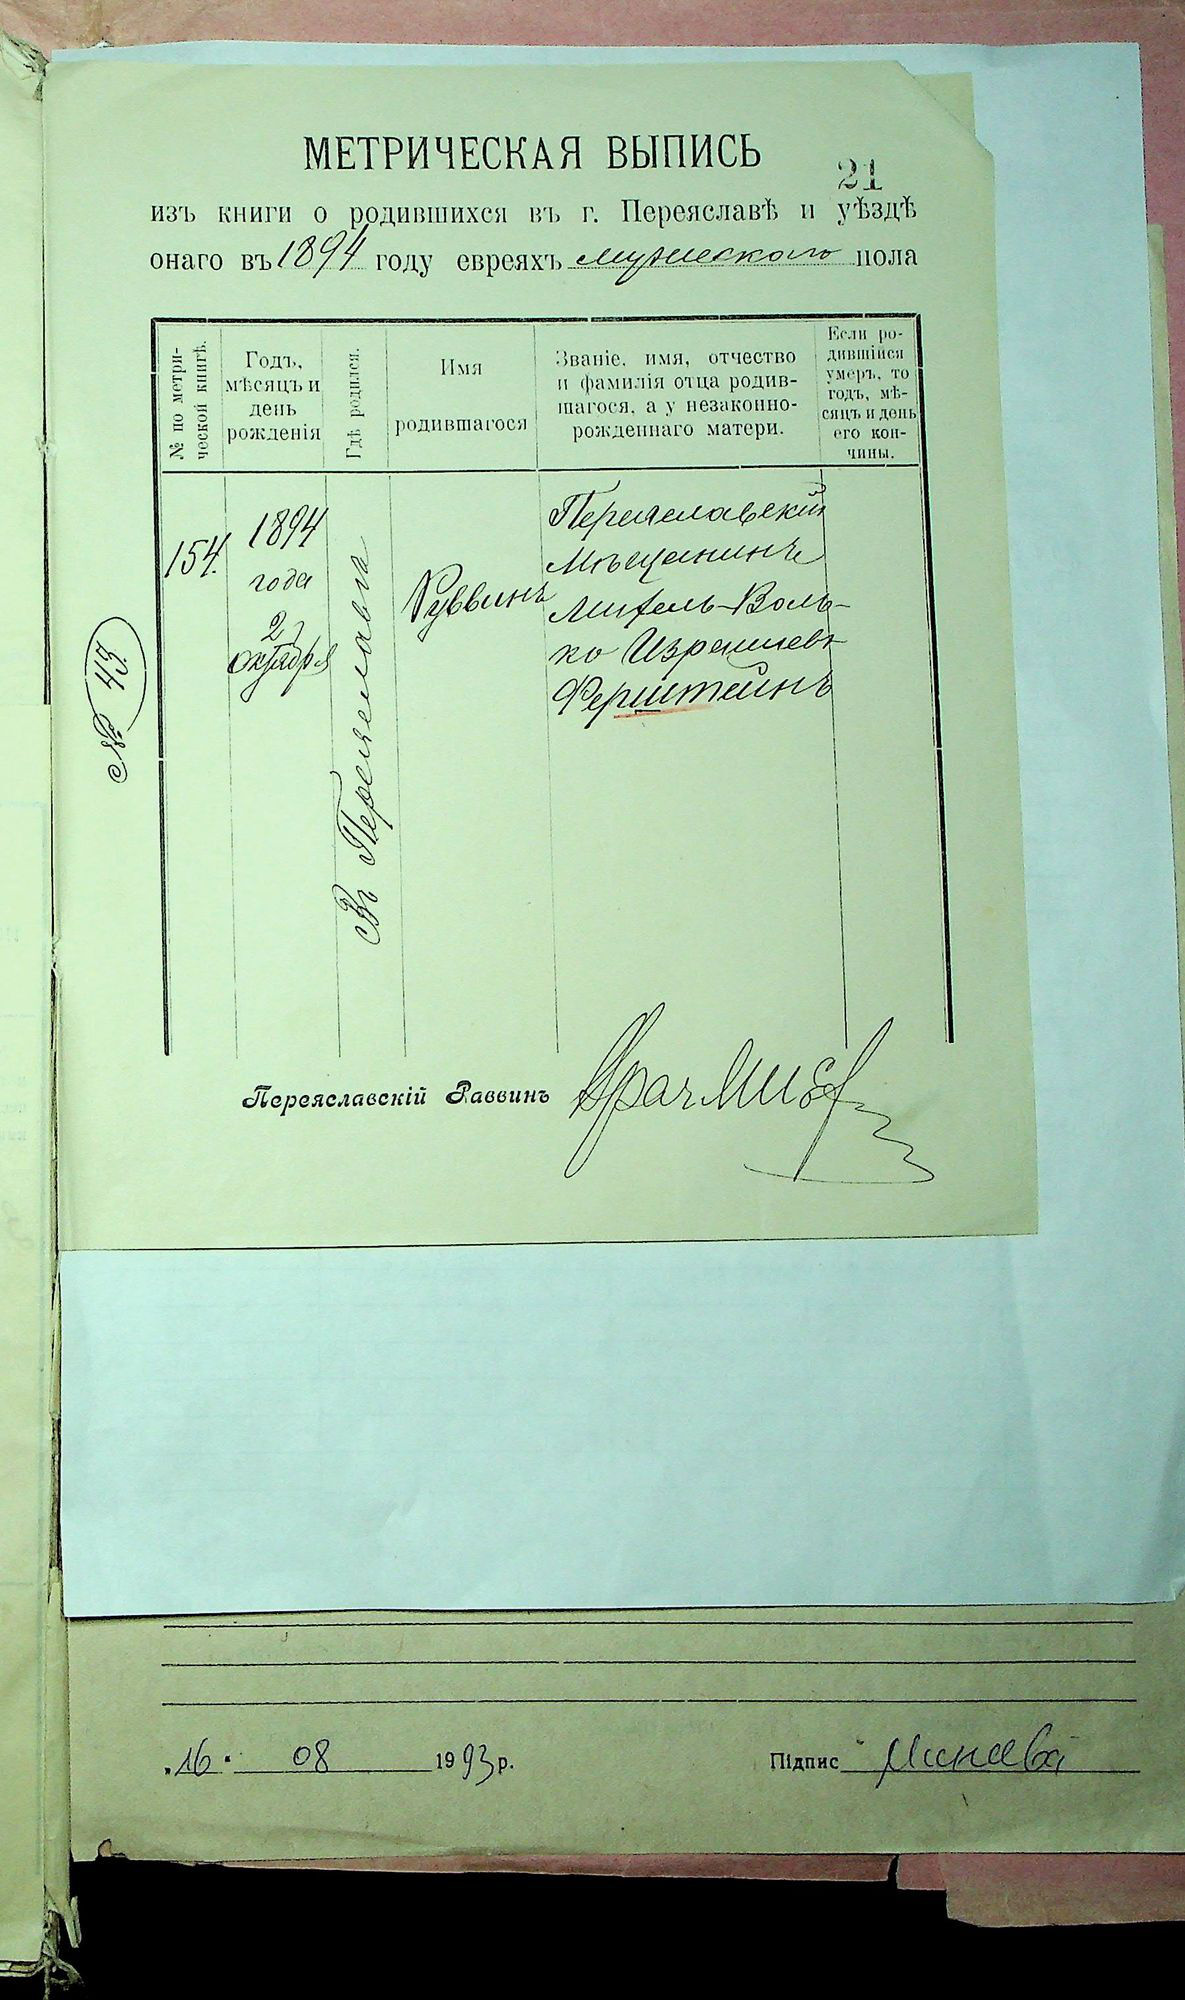 МЕТРИЧЕСКАЯ ВЫПИСЬ
21
изъ книги о родившихся въ г. Переяславѣ и уѣздѣ
онаго въ 1894 году евреяхъ мужескаго пола
№ по метри-
ческой книгѣ.
Годъ,
мѣсяцъ и
день
рожденія
Гдѣ родился.
Имя
родившагося
Званіе, имя, отчество
и фамилія отца родив-
шагося, а у незаконно-
рожденнаго матери.
Если ро-
дившійся
умеръ, то
годъ, мѣ-
сяцъ и день
его кон-
чины.
154.
1894
года
октября
Въ Переяславѣ
Руввинъ
Переяславскій
Мѣщанинъ
ВOль-
ко Израилевъ
Ферштейнъ
№ 43
Переяславскій Раввинъ
Врач
„16" 08 1993 р.
Підпис